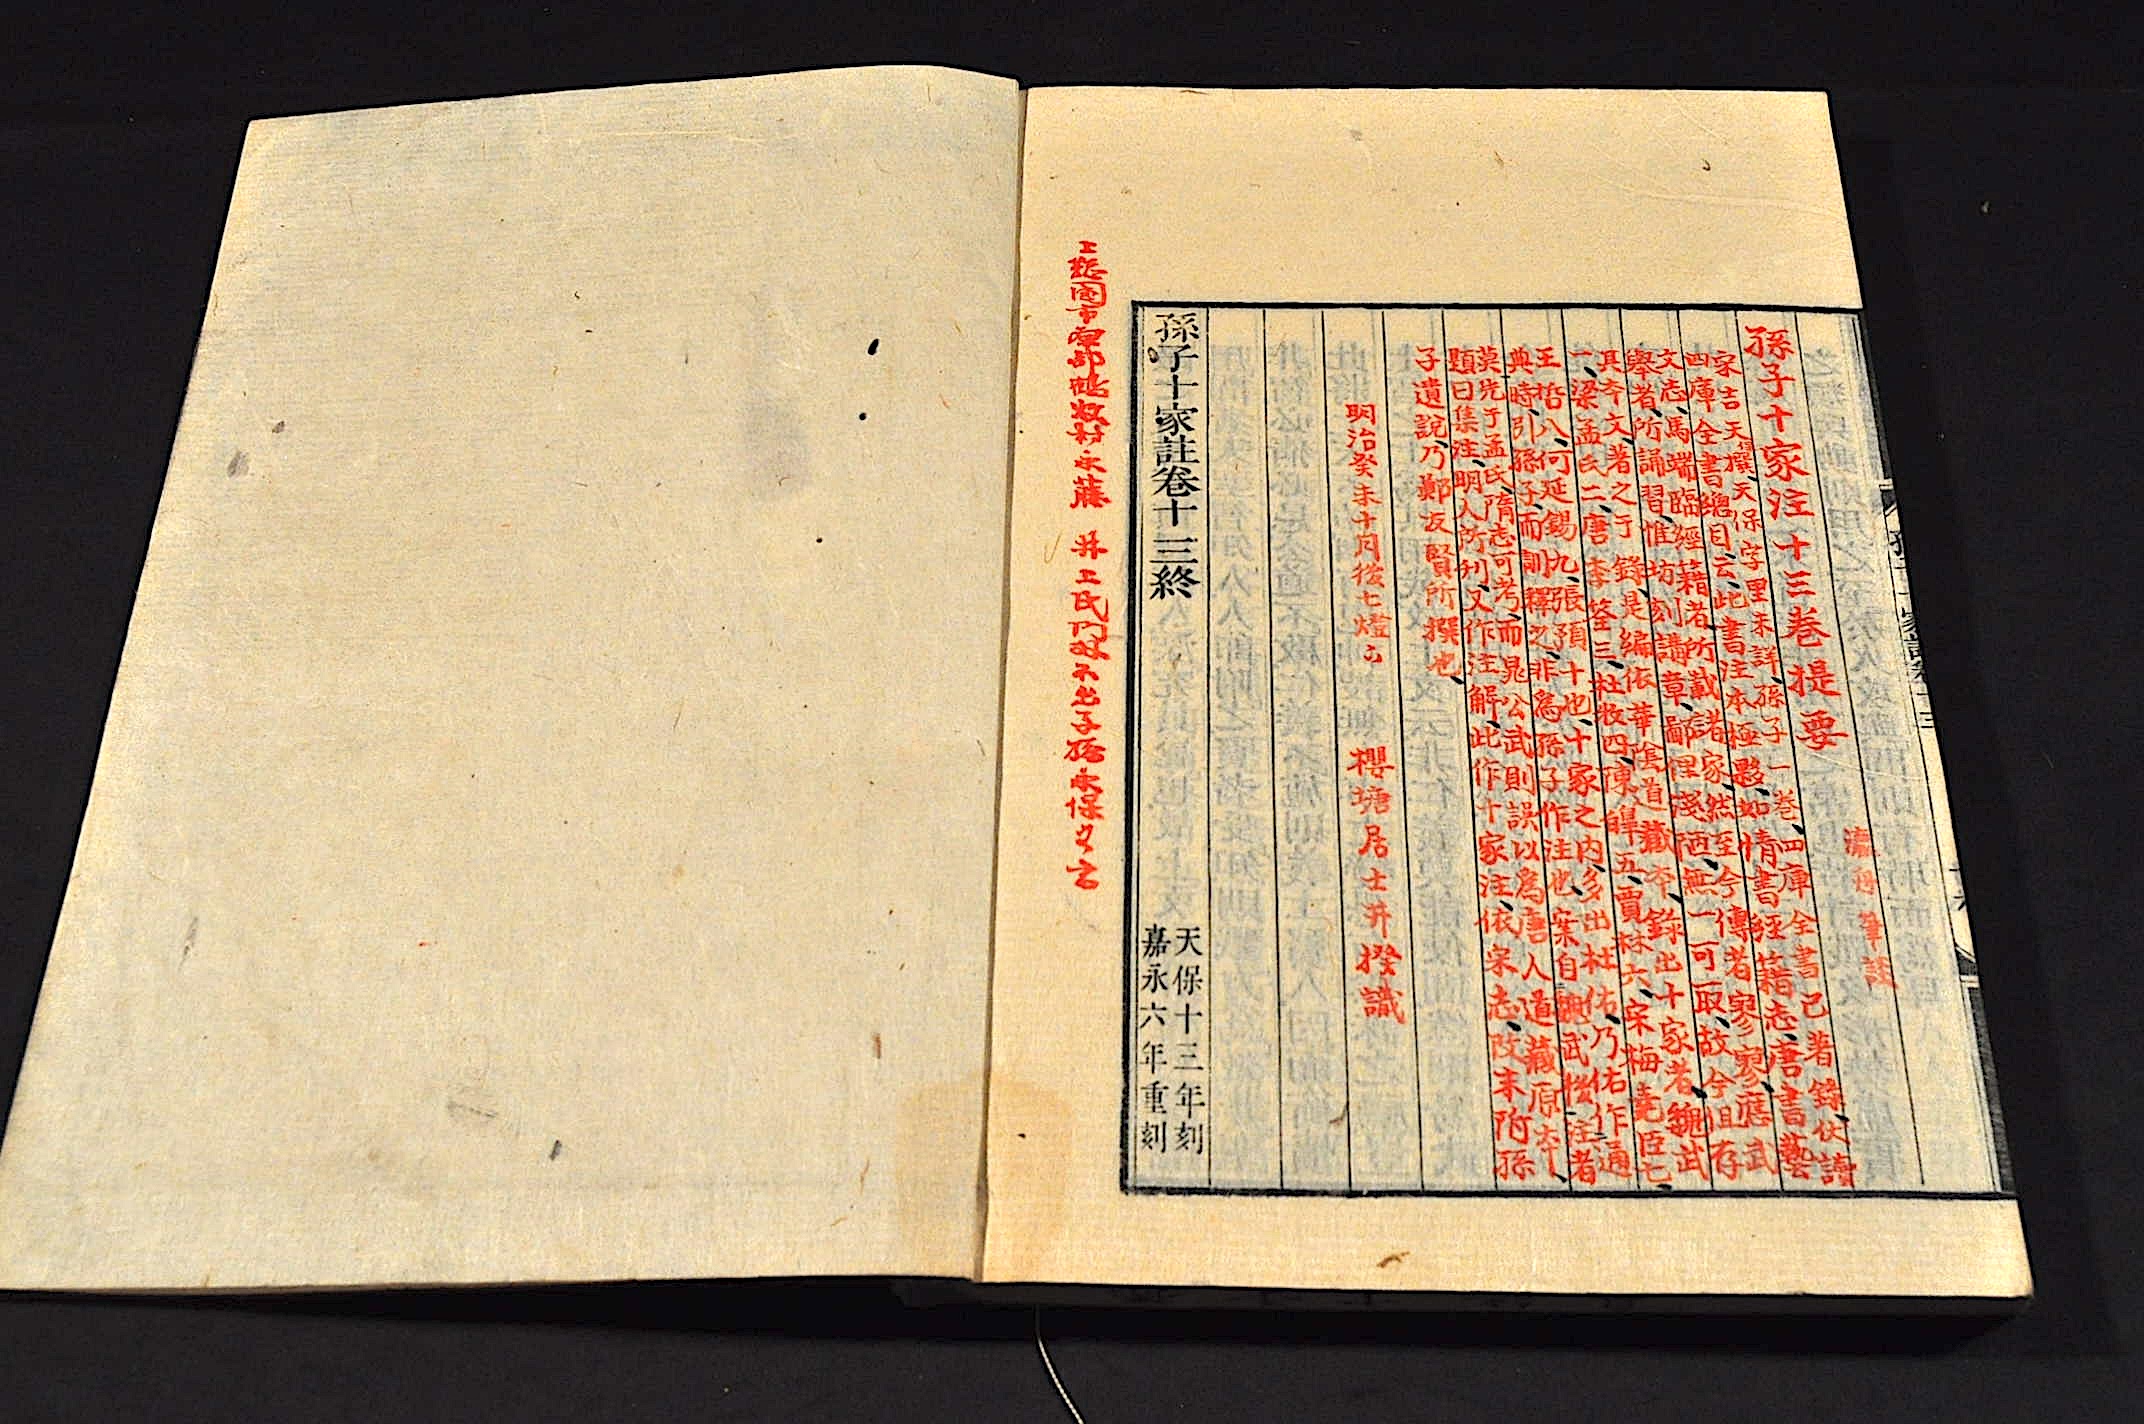 孫子十家注十三卷提要
宋吉天保撰、天保字里未詳、孫子一巻、四庫全書已著録、伏讀
四庫全書總目云、此書注本極夥、如隋書經籍志、唐書藝
文志、馬端臨經籍考所載諸家、然至今傳者寥寥、應武
舉者所誦習、惟坊刻講章、鄙俚淺陋、無一可取、故今但存
其本文、著之于録、是編依華陰道藏本、録出十家者、魏武
一、梁孟氏二、唐李筌三、杜牧四、陳皥五、賈林六、宋梅堯臣七、
王晢八、何延錫九、張預十也、十家之内、多出杜佑、乃佑作通
典時、引孫子而訓釋之、非爲孫子作注也、案自魏武後、注者
莫先于孟氏、隋志可考、而晁公武則誤以爲唐人、道藏原本、
題曰集注、明人所刊、又作注解、此作十家注、依宋志、改末附孫
子遺説、乃鄭友賢所撰也、
明治癸未十月後七燈下 櫻塘居士井揆識
孫子十家註卷十三終
天保十三年刻
嘉永六年重刻
井上氏門外不出子孫永保